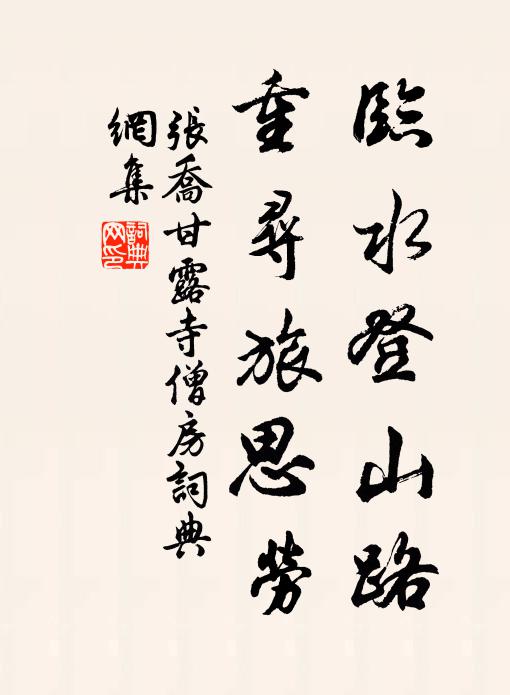 臨水登山路
重尋旅思勞
張喬甘露寺僧房詞典
網集
詞典
网印